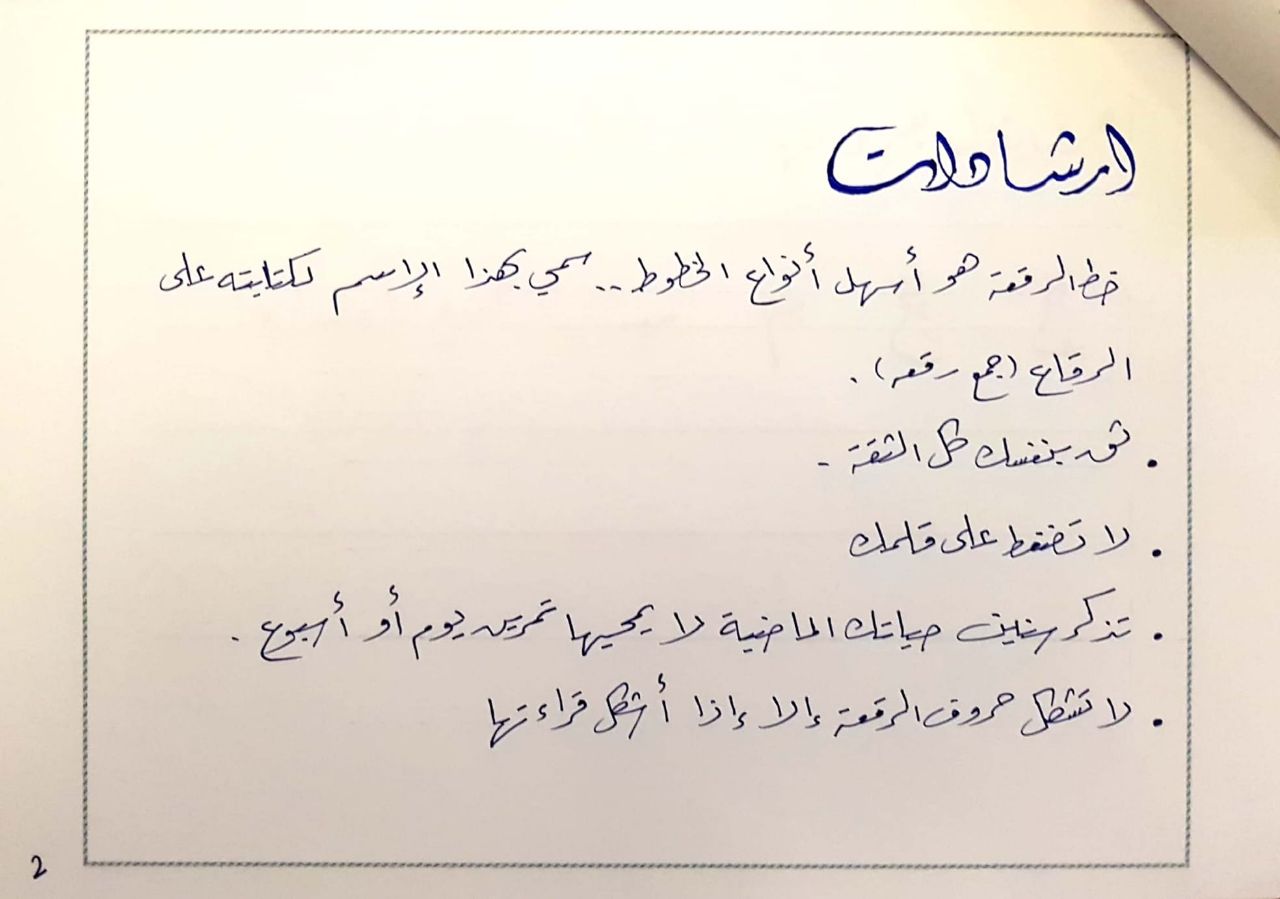 ارشادات
خط الرقعة هو أسهل أنواع الخطوط .. سمي بهذا الإسم لكتابته على
الرقاع (جمع رقعه) .
• ثق بنفسك كل الثقة .
• لا تضغط على قلمك
• تذكر سنين حياتك الماضية لا يمحيها تمرين يوم أو أسبوع .
• لا تشكل حروف الرقعة إلا إذا أشكل قراءتها
2